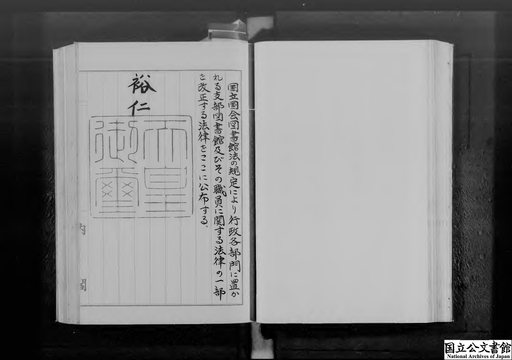 国立国会図書館法の規定により行政各部門に置か
れる支部図書館及びその職員に関する法律の一部
を改正する法律をここに公布する。
裕仁
天皇
御璽
内閣
国立公文書館
National Archives of Japan